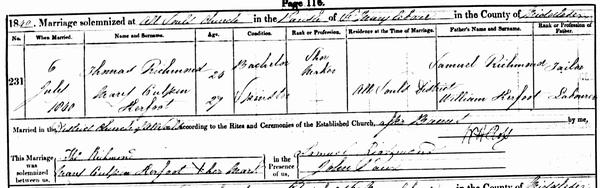 Page 116.
1840. Marriage solemnized at All Souls Church in the Parish of St Mary lebone in the County of Middlesex
No. When Married. Name and Surname. Age Condition. Rank or Profession. Residence at the Time of Marriage. Father's Name and Surname. Rank or Profession of Father.
231 6 Thomas Richmond Bachelor Shoe Maker Samuel Richmond Tailor
July All Souls District
1840 Kerfoot 27 Spinster William Kerfoot Labourer
Married in the District Church of All Souls According to the Rites and Ceremonies of the Established Church, after Banns by me,
This Marriage was solemnized between us, Thos Richmond Kerfoot her mark in the Presence of us, Samuel Richmond